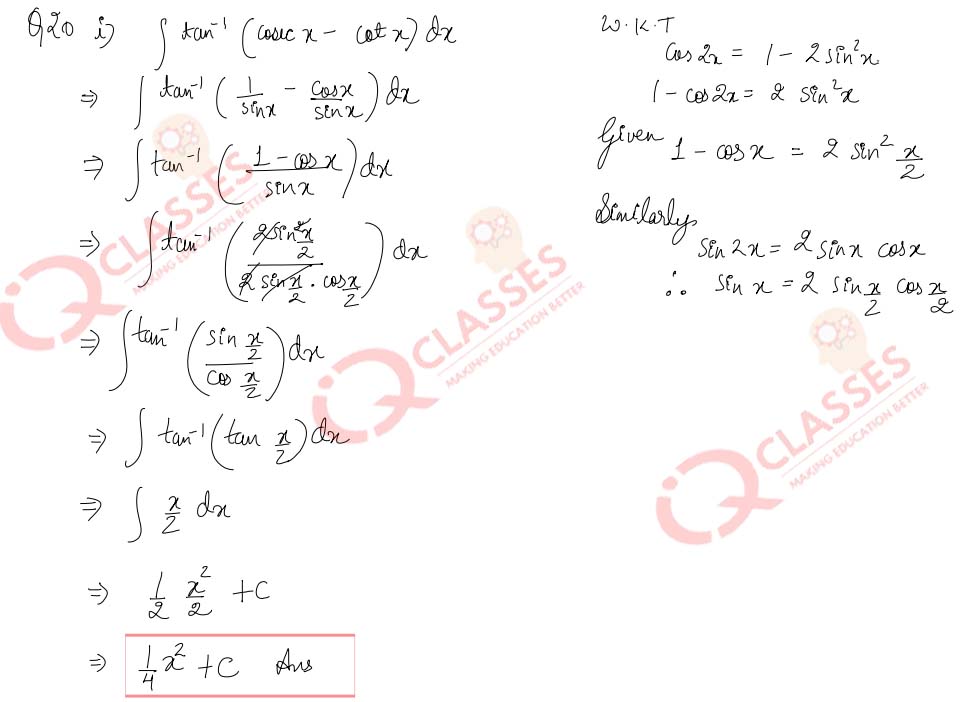 Q20 i) ∫ tan⁻¹ (cosec x - cot x) dx
⇒ ∫ tan⁻¹ (1/sinx - cosx/sinx) dx
⇒ ∫ tan⁻¹ (1 - cos x / sin x) dx
⇒ ∫ tan⁻¹ (2 sin² x/2 / 2 sin x/2 · cos x/2) dx
⇒ ∫ tan⁻¹ (sin x/2 / cos x/2) dx
⇒ ∫ tan⁻¹ (tan x/2) dx
⇒ ∫ x/2 dx
⇒ 1/2 x²/2 + C
⇒ 1/4 x² + C Ans
W.K.T
Cos 2x = 1 - 2 sin²x
1 - cos2x = 2 sin²x
Given 1 - cos x = 2 sin² x/2
Similarly
sin 2x = 2 sinx cosx
∴ sin x = 2 sin x/2 cos x/2
IQ CLASSES
MAKING EDUCATION BETTER
IQ CLASSES
MAKING EDUCATION BETTER
IQ CLASSES
MAKING EDUCATION BETTER